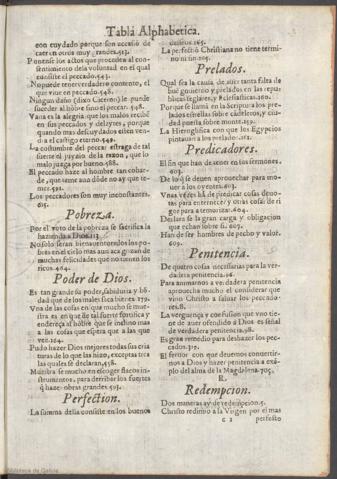 Tabla Alphabetica.
con cuydado porque son ocasió de
caer en otros muy grandes.513.
Ponense los actos que proceden al co-
sentimiento dela voluntad en el qual
consiste el peccado.543.
No puede tener verdadero contento, el
que viue en peccado.548.
Ningun daño (dixo Cicero) le puede
suceder al hõbre sino el peccar. 548.
Vana es la alegria que los malos reciбẽ
en sus peccados y deleytes, porque
quando mas descuydados esten ven-
dra el castigo eterno.549.
La costumbre del peccar estraga de tal
suerte el juyzio de la razon, que lo
malo juzga por bueno.588.
El peccado haze al hombre tan cobar-
de, que teme aun dõde no ay que te-
mer.591.
Los peccadores son muy inconstantes.
615.
Pobreza.
Por el voto de la pobreza se sacrifica la
hazienda a Dios.113
No solo seran bienauenturados los po-
bres en el cielo mas aun aca gozan de
muchas felicidades que no tienen los
ricos.464.
Poder de Dios.
Es tan grande su poder, sabiduria y bõ-
dad que de los males saca bienes 279.
Vna de las cosas en que mucho se mue-
stra es en que de tal suerte fortifica y
endereça al hõbre que se inclino mas
a las cosas que espera que a las que
vee.204.
Pudo hazer Dios mejores todas sus cria
turas de lo que las hizo, exceptas tres
las quales se declaran,458.
Muestra se mucho en escoger flacos in-
strumentos, para derribar los fuertes
q̃ haze obras grandes 503.
Perfection.
La summa della consiste en los buenos
desseos.165.
La perfectiõ Christiana no tiene termi-
no ni fin.205.
Prelados.
Qual sea la causa, de auer tanta falta de
bué gouierno y prelados en las repu
blicas seglares, y Ecclesiasticas.260.
Porque se llamã en la Scriptura los pre-
lados estrellas sobre cãdeleros, y ciu
dad puesta sobre monte.259.
La Hieroglifica con que los Egypcios
pintauan a los prelados.261.
Predicadores.
El fin que han de tener en sus sermones.
603.
De lo q̃ se deuen aprouechar para mo-
uer a los oyentes.603.
Vnas vezes hã de predicar cosas deuo-
tas para enternecer y otras cosas de ri
gor para atemorizar.604.
Declara se la gran carga y obligacion
que echan sobre si. 607.
Han de ser hombres de pecho y valor.
609.
Penitencia.
De quatro cosas necessarias para la ver-
dadera penitencia.96.
Para animarnos a verdadera penitencia
aprouecha mucho el considerar que
vino Christo a saluar los peccado-
res.8.
La verguença y confusion que vno tie-
ne de auer ofendido a Dios es señal
de verdadera penitencia.98.
Es gran remedio para deshazer los pec-
cados.315.
El feruor con que deuemos conuertir-
nos a Dios y hazer penitencia a exé-
plo del alma de la Magdalena.705.
R.
Redempcion.
Dos maneras ay de redempcion.5.
Christo redimio a la Virgen por el mas
c 2
perfecto
Biblioteca de Galicia